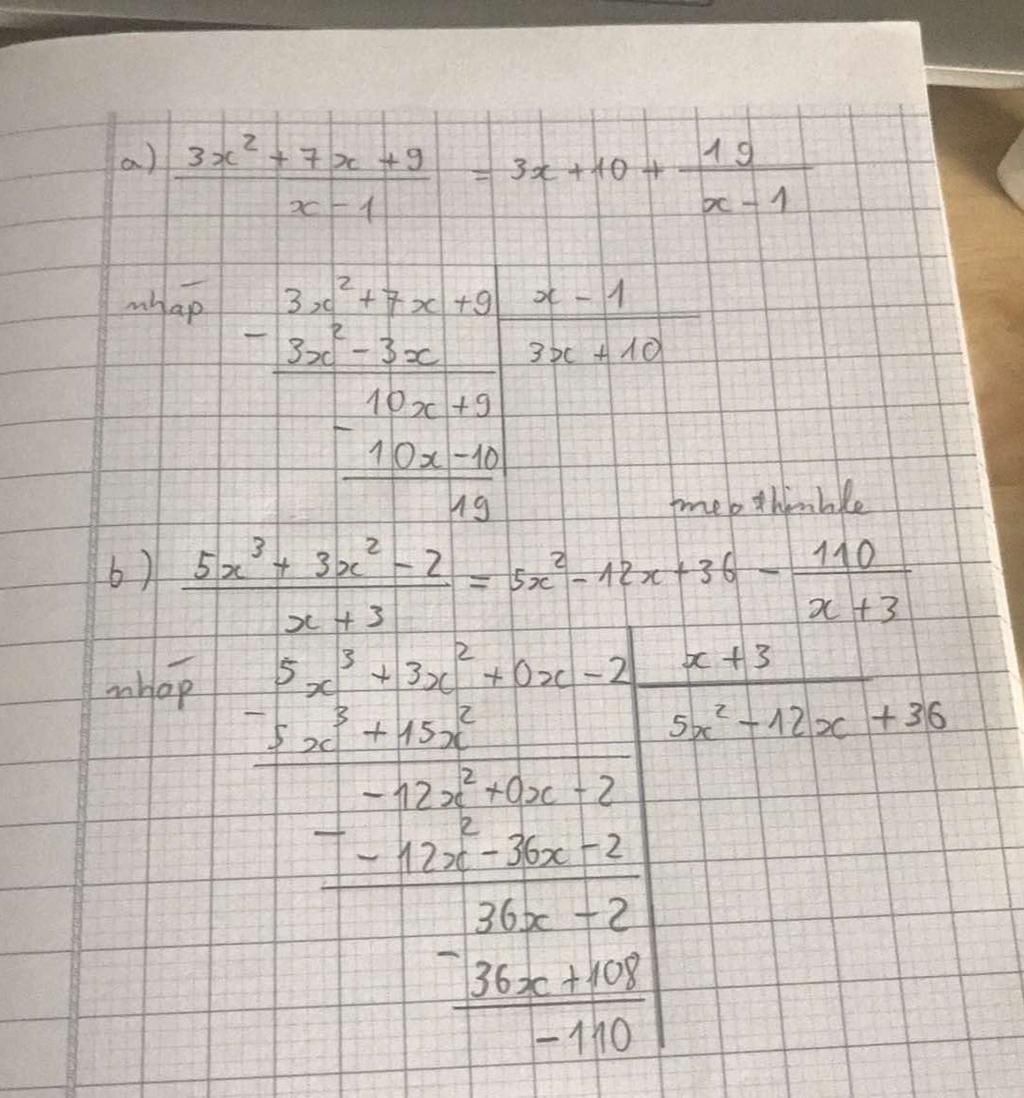 a) (3x² + 7x + 9)/(x - 1) = 3x + 10 + 19/(x - 1)
nhāp 3x² + 7x + 9 | x - 1
- 3x² - 3x | 3x + 10
10x + 9
- 10x - 10
19
b) (5x³ + 3x² - 2)/(x + 3) = 5x² - 12x + 36 - 110/(x + 3)
nhāp 5x³ + 3x² + 0x - 2 | x + 3
- 5x³ + 15x² | 5x² - 12x + 36
- 12x² + 0x - 2
- - 12x² - 36x - 2
36x - 2
- 36x + 108
- 110